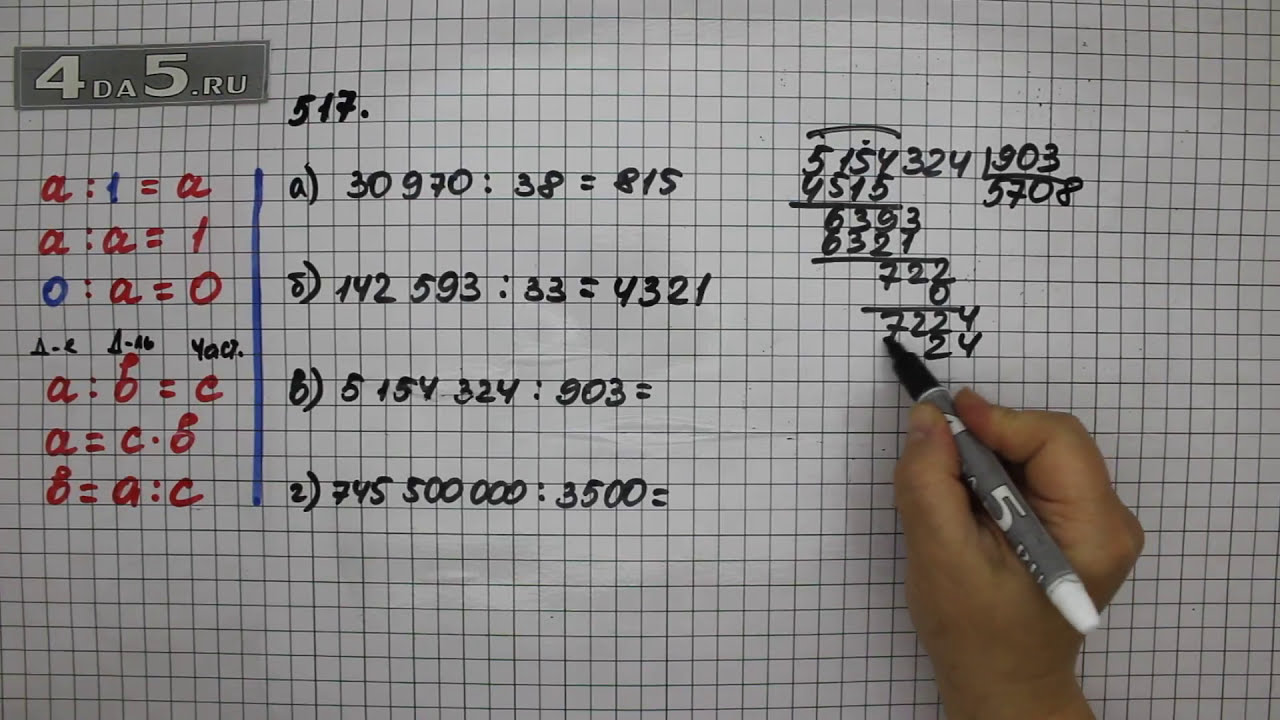 4DA5.RU
517.
a : 1 = a
a : a = 1
0 : a = 0
Д-е Д-ль Част.
a : в = c
a = c · в
в = a : c
а) 30 970 : 38 = 815
б) 142 593 : 33 = 4321
в) 5 154 324 : 903 =
г) 745 500 000 : 3500 =
5154324 903
4515 5708
6393
6321
722
0
7224
24